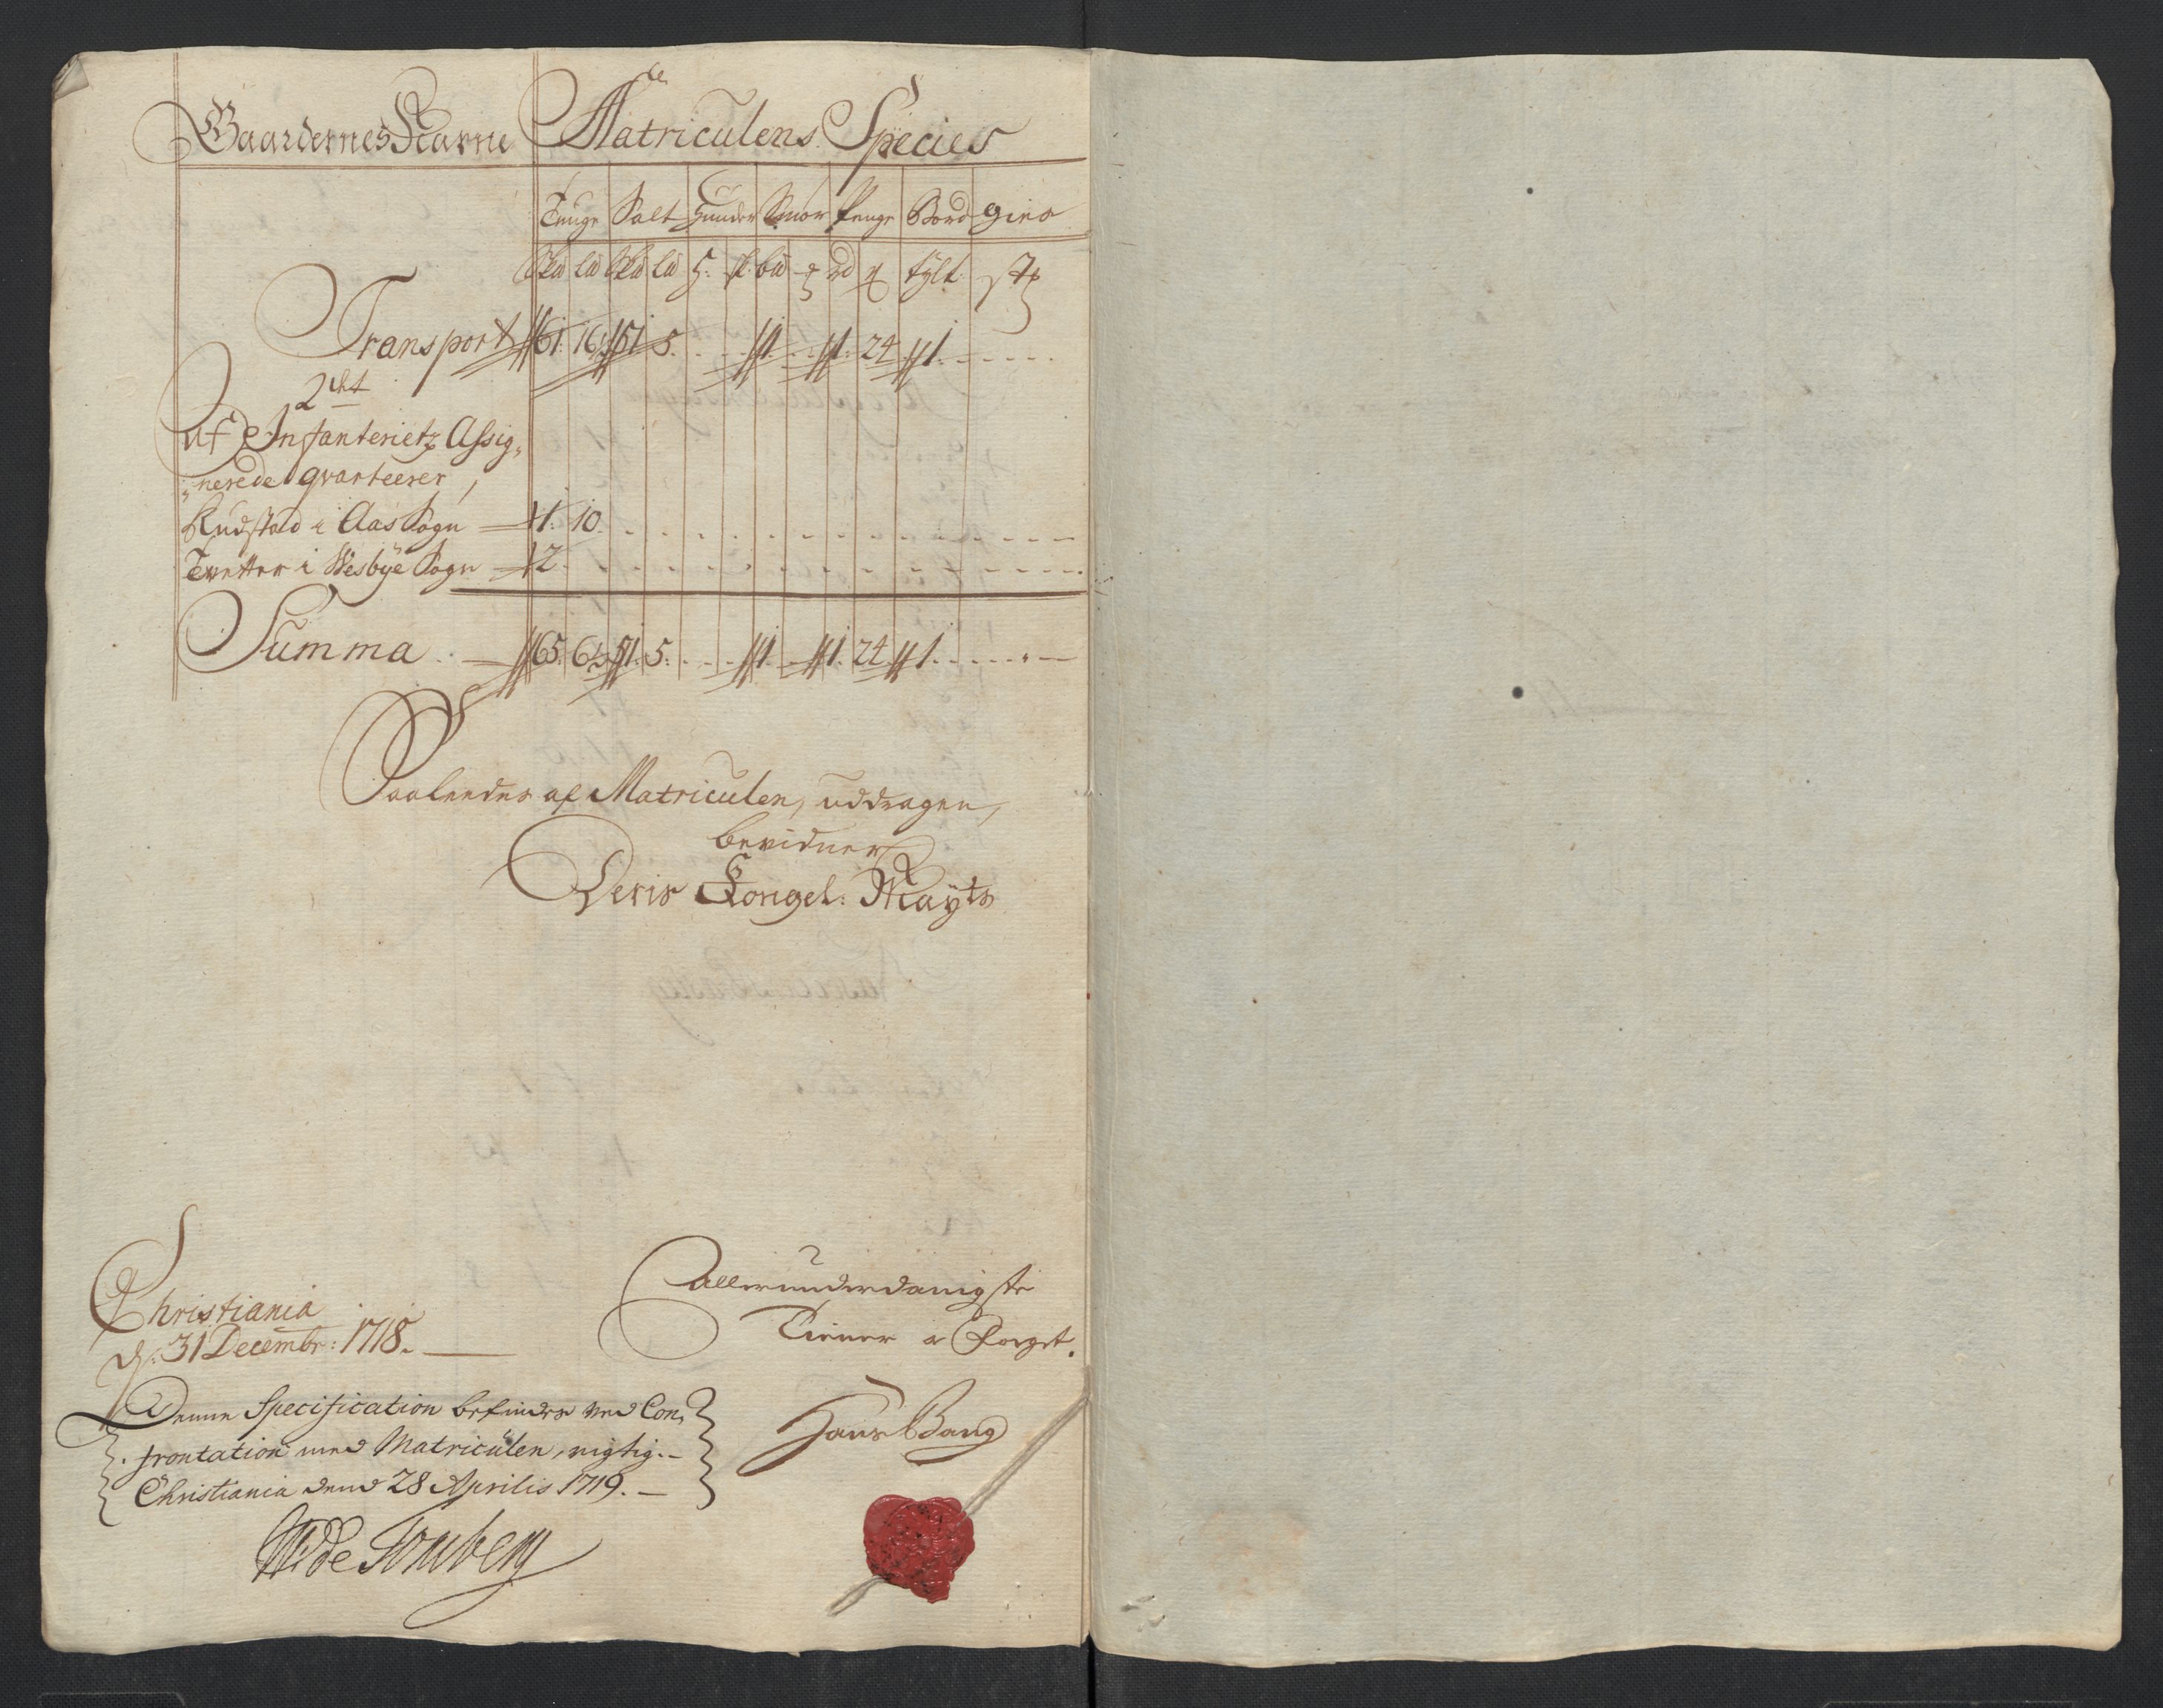 Gaardernes Nafne Matriculens Species
Tunge Salt Hunder Smör Penge Bord gies
Skd Ld Skd Ld H: fl: bd rd tylt
Transport 61: 16 51 5. - - 1. - 1. 24 1. - - - -
2det
Af Infanteriets Assig„
„nerede qvarteerer,
Rudstad i Aas Sogn 1: 10. - - - - - - -
Tvetter i Wesbye Sogn 2. - - - - - - -
Summa 65: 6 51: 5. - - 1. - 1. 24 1. - - - -
Saaleedes af Matriculen, uddragen,
bevidner
Deris Kongel: Mayts
Christiania
d: 31 Decembr: 1718.
Allerunderdanigste
Tiener
Hans Bang
Denne Specification befindes ved Con„
frontation med Matriculen, rigtig.
Christiania dend 28 Aprilis 1719.